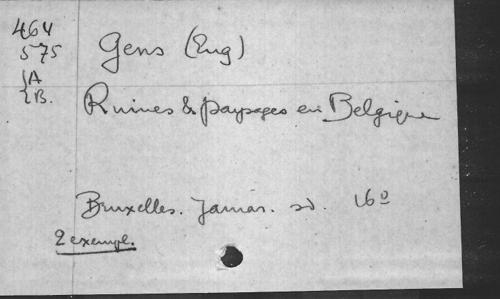 464
575
A
B.
Gens (Eug)
Ruines & paysages en Belgique
Bruxelles. Jamar. sd. 16º
2 exempl.